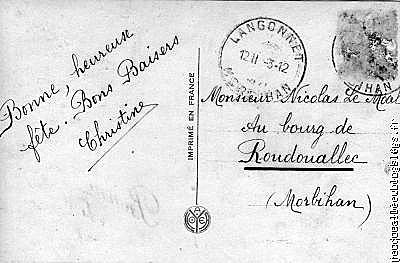 Bonne, heureuse
fête. Bons Baisers
Christine
IMPRIMÉ EN FRANCE
LANGONNET
12 11 -3-12
Monsieur Nicolas Le
Au bourg de
Roudouallec
(Morbihan)